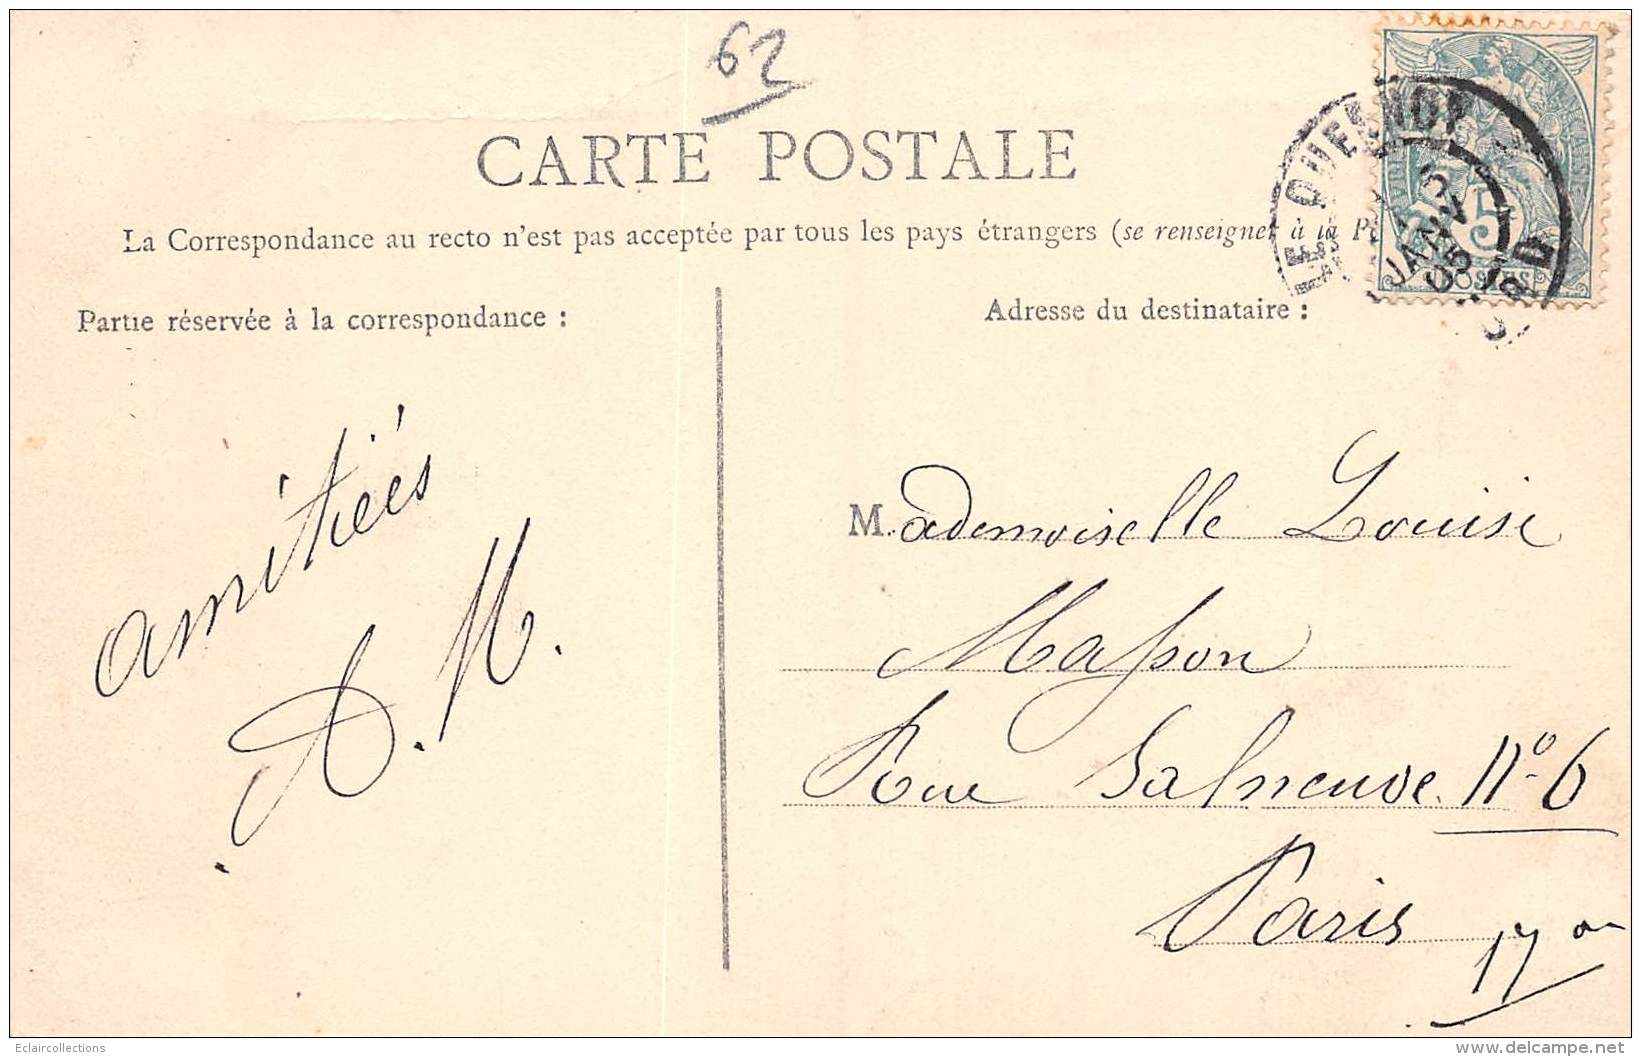 62
CARTE POSTALE
La Correspondance au recto n'est pas acceptée par tous les pays étrangers (se renseigner à la P
LE QUESNOY
JANV
05
NORD
5
POSTES
Partie réservée à la correspondance :
Adresse du destinataire :
amitiés
A. M.
Mademoiselle Louise
Masson
Rue Salneuve N° 6
Paris
17
Eclaircollections
delcampe.net